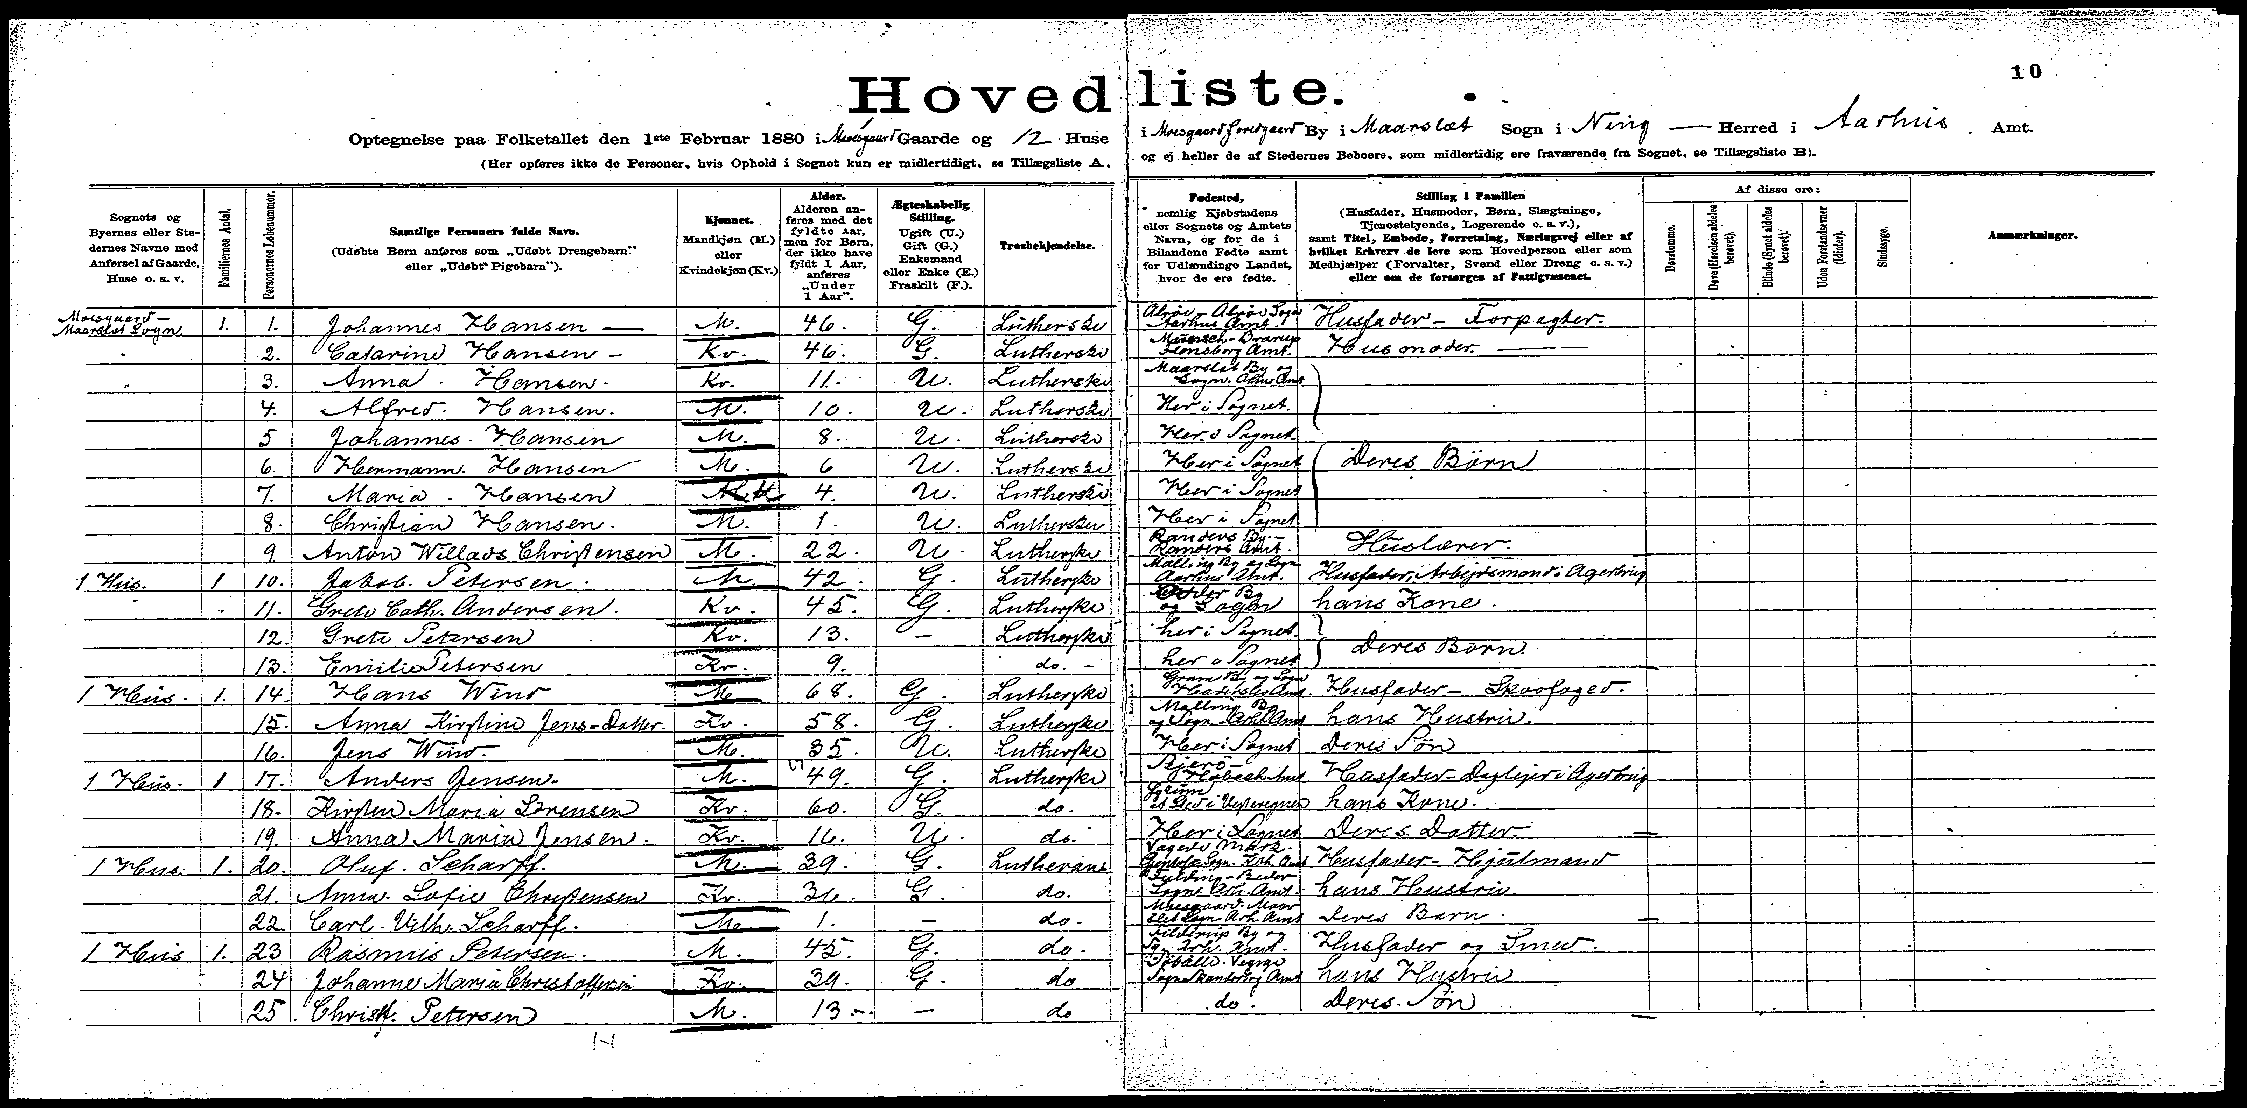 10
Hovedliste.
Optegnelse paa Folketallet den 1ste Februar 1880 i Moesgaard Gaarde og 12 Huse i Moesgaard Hovedgaard By i Maarslet Sogn i Ning Herred i Aarhus Amt.
(Her opføres ikke de Personer, hvis Ophold i Sognet kun er midlertidigt, se Tillægsliste A, og ej heller de af Stedernes Beboere, som midlertidig ere fraværende fra Sognet, se Tillægsliste B).
Sognets og Byernes eller Stedernes Navne med Anførsel af Gaarde, Huse o. s. v.
Familiernes Antal.
Personernes Løbenummer.
Samtlige Personers fulde Navn.
(Udøbte Børn anføres som „Udøbt Drengebarn" eller „Udøbt Pigebarn").
Kjønnet.
Mandkjøn (M.) eller Kvindekjøn (Kv.)
Alder.
Alderen anføres med det fyldte Aar, men for Børn, der ikke have fyldt 1 Aar, anføres „Under 1 Aar".
Ægteskabelig Stilling.
Ugift (U.) Gift (G.) Enkemand eller Enke (E.) Fraskilt (F.).
Trosbekjendelse.
Fødested,
nemlig Kjøbstadens eller Sognets og Amtets Navn, og for de i Bilandene Fødte samt for Udlændinge Landet, hvor de ere fødte.
Stilling i Familien
(Husfader, Husmoder, Børn, Slægtninge, Tjenestetyende, Logerende o. s. v.), samt Titel, Embede, Forretning, Næringsvej eller af hvilket Erhverv de leve som Hovedperson eller som Medhjælper (Forvalter, Svend eller Dreng o. s. v.) eller om de forsørges af Fattigvæsenet.
Af disse ere:
Døvstumme.
Døve (Hørelsen aldeles berøvet).
Blinde (Synet aldeles berøvet).
Uden Forstandsevner (Idioter).
Sindssyge.
Anmærkninger.
Moesgaard – Maarslet Sogn 1. 1. Johannes Hansen M. 46. G. Lutherske Alrøe – Alrøe Sogn Aarhus Amt Husfader – Forpagter.
2. Catarine Hansen Kv. 46. G. Lutherske Flensborg Amt. Husmoder.
3. Anna Hansen Kv. 11. U. Lutherske Maarslet By og Sogn. Ahus Amt
4. Alfred Hansen. M. 10. U. Lutherske Her i Sognet.
5 Johannes Hansen M. 8. U. Lutherske Her i Sognet.
6. Hermann Hansen M. 6 U. Lutherske Her i Sognet Deres Børn
7. Maria Hansen 4. U. Lutherske Her i Sognet
8. Christian Hansen. M. 1. U. Lutherske Her i Sognet
9 Anton Willads Christensen M. 22. U. Lutherske Randers By – Randers Amt. Huslærer.
1 Hus. 1 10. Jakob Petersen. M. 42. G. Lutherske Malling By og Sogn Aarhus Amt. Husfader, Arbejdsmand i Agerbrug
11. Grete Cath. Andersen. Kv. 45. G. Lutherske By og Sogn hans Kone.
12. Grete Petersen Kv. 13. – Lutherske her i Sognet
13. Emilie Petersen Kv. 9. do. her i Sognet Deres Børn
1 Hus. 1. 14. Hans Wind M 68. G. Lutherske Gram By og Sogn Haderslev Amt. Husfader – Skovfoged.
15. Anna Kirstine Jens-Datter Kv. 58. G. Lutherske Malling By og Sogn Arh. Amt hans Hustru.
16. Jens Wind M. 35. U. Lutherske Her i Sognet Deres Søn
1 Hus. 1 17. Anders Jensen. M. 49. G. Lutherske Holbæk Amt Husfader – Daglejer i Agerbrug
18. Kirsten Maria Sørensen Kv. 60. G. do. hans Kone.
19. Anna Maria Jensen. Kv. 16. U. do. Her i Sognet Deres Datter
1 Hus. 1. 20. Oluf Scharff. M. 39. G. Lutheran Sogn. Arh. Amt Husfader – Hjulmand
21. Anna Sofie Christensen Kv. 36. G. do. Fulding – Beder Sogn Arh. Amt. hans Hustru.
22. Carl Vilh. Scharff. M. 1. – do. Moesgaard. Maarslet Sogn Arh. Amt Deres Barn.
1 Hus 1. 23 Rasmus Petersen. M. 45. G. do. By og Arh. Amt. Husfader og Smed.
24 Johanne Maria Christoffersen Kv. 39. G. do Sogn Skanderborg Amt hans Hustru
25. Christ. Petersen M. 13 – do do. Deres Søn